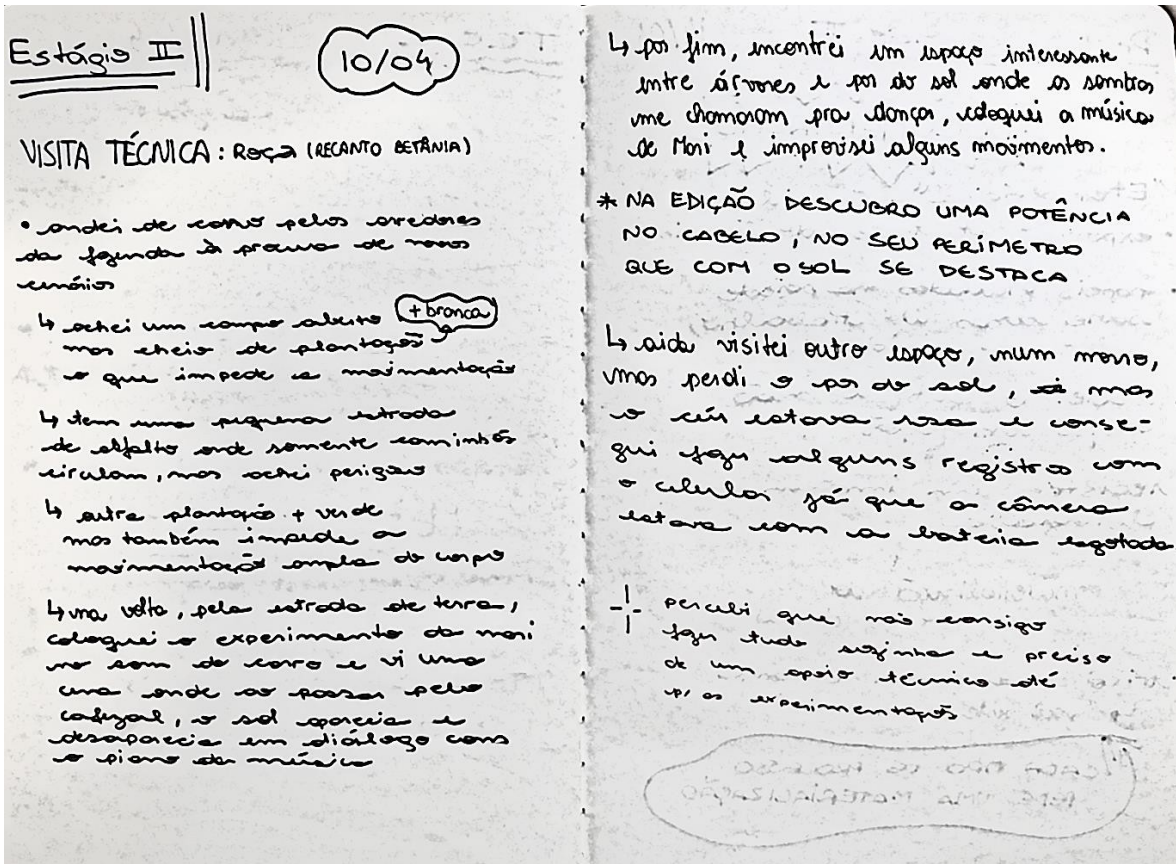 Estágio II
10/04
VISITA TÉCNICA: ROÇA (RECANTO BETÂNIA)
• andei de carro pelos arredores
da fazenda à procura de novos
cenários
↳ achei um campo aberto + branca
mas cheio de plantação
o que impede a movimentação
↳ tem uma pequena estrada
de alfalto onde somente caminhões
circulam, mas achei perigoso
↳ outra plantação + verde
mas também impede a
movimentação ampla do corpo
↳ na volta, pela estrada de terra,
coloquei o experimento da mori
no som do carro e vi uma
cena onde ao passar pelo
cafezal, o sol aparecia e
desaparecia em diálogo com
o piano da música
↳ por fim, encontrei um espaço interessante
entre árvores e por do sol onde as sombras
me chamaram pra dança, coloquei a música
de Mori e improvisei alguns movimentos.
* NA EDIÇÃO DESCUBRO UMA POTÊNCIA
NO CABELO, NO SEU PERÍMETRO
QUE COM O SOL SE DESTACA
↳ aida visitei outro espaço, num morro,
mas perdi o por do sol, mas
o céu estava rosa e conse-
gui fazer alguns registros com
o celular já que a câmera
estava com a bateria esgotada
percebi que não consigo
fazer tudo sozinha e preciso
de um apoio técnico até
p/ as experimentações